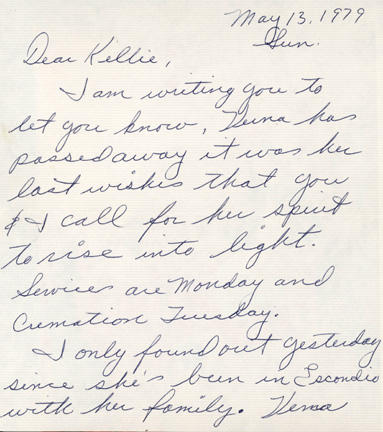 May 13, 1979
Sun.
Dear Kellie,
I am writing you to
let you know, Verna has
passed away it was her
last wishes that you
& I call for her spirit
to rise into light.
Services are Monday and
Cremation Tuesday.
I only found out yesterday
since she's been in Escondio
with her family. Verna